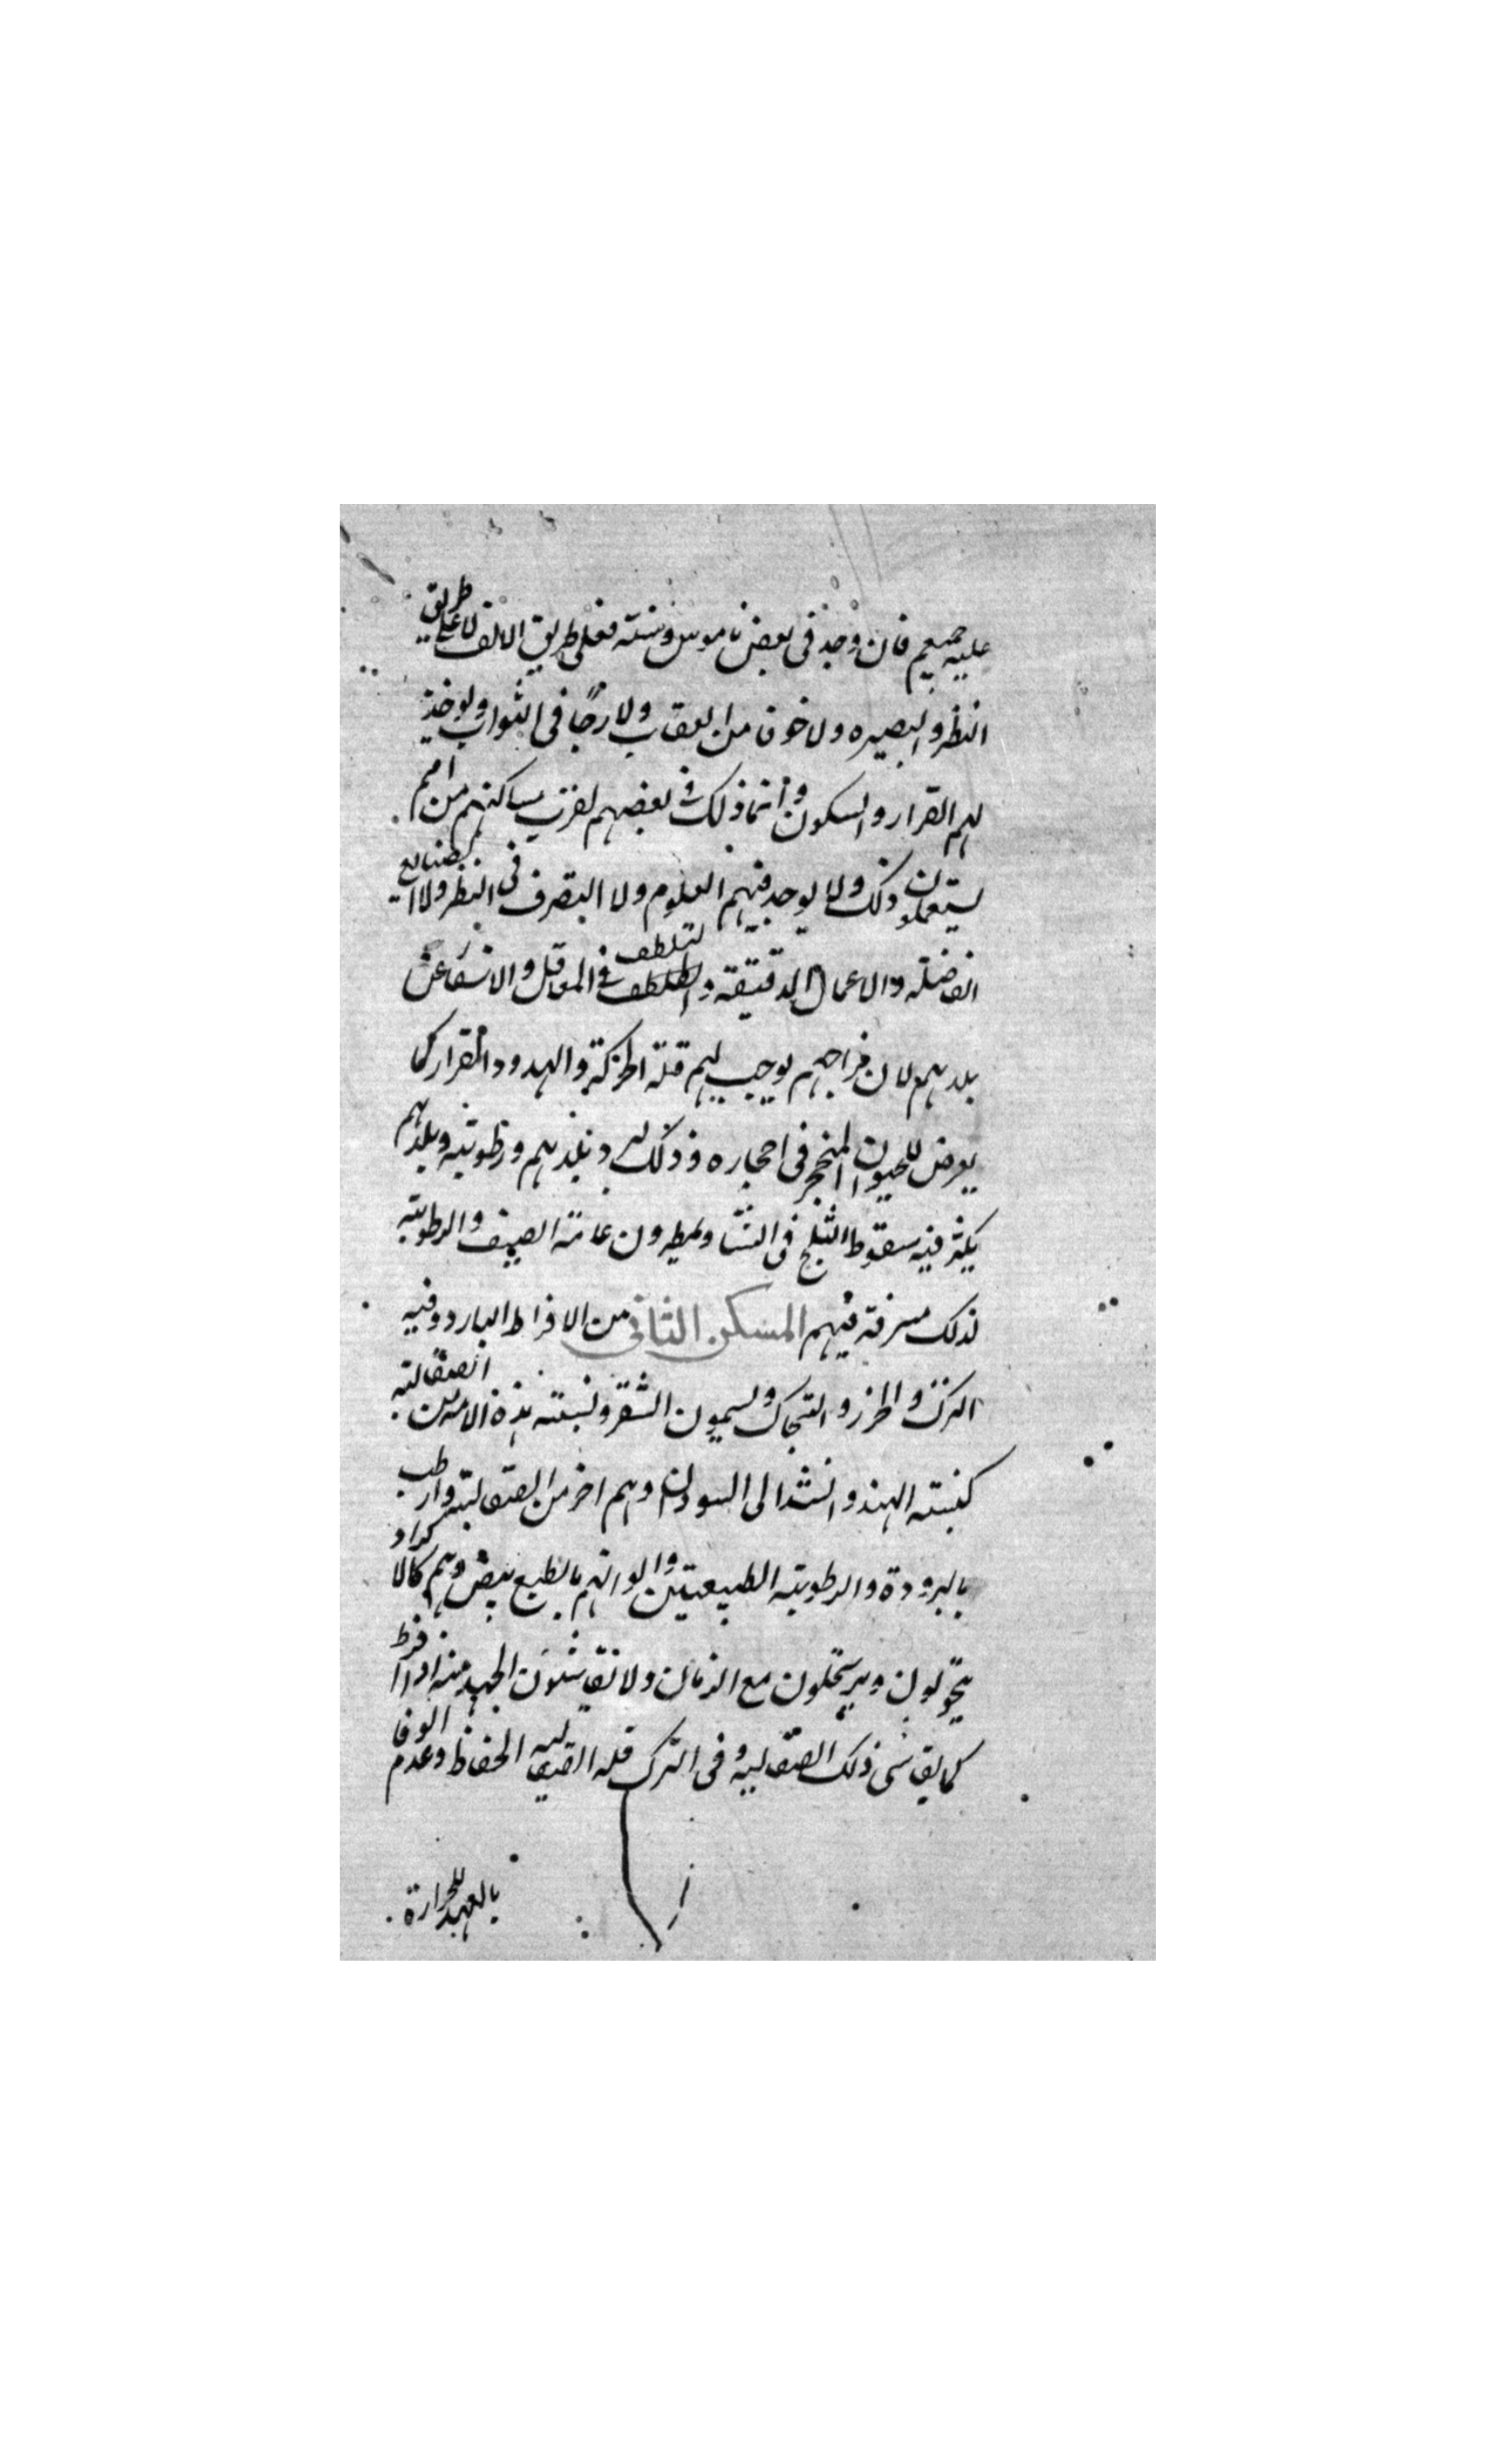 عليه جميعهم فان وجد في بعض ناموس وسنته فعلى طريق الالف لا على طريق
النظر والبصيره ولا خوفا من العقاب ولا رجا في الثواب ويوخذ
لهم القرار والسكون وانما ذلك في بعضهم لقرب مساكنهم من امم
يستعملون ذلك ولا يوجد فيهم العلوم ولا التصرف في النظر ولا الصنايع
الفاضلة والاعمال الدقيقة والتلطف في المعاقل والانتقا عن
بلدهم لان مزاجهم يوجب لهم قلة الحركة والهدو والقرار كما
يعرض للحيوان المنجحر في احجاره وذلك لبرد بلدهم ورطوبته وبلدهم
يكثر فيه سقوط الثلج في الشتا ويمطرون عامة الصيف والرطوبة
لذلك مسرفة فيهم المسكن الثاني من الافراط البارد وفيه
الترك والخزر و ويسمون الشقر ونسبته هذه الامه من الصقالبة
كنسبته الهند والسند الى السودان وهم اخر من الصقالبة وارطب
بالبرودة والرطوبة الطبيعتين والوانهم بالطبع بيض وهم كالاكراد
يتحولون ويرتحلون مع الزمان ولا يقاسون الجهد منه اذا افرط
كما يقاسى ذلك الصقالبه وفي الترك قلة الحفاظ وعدم الوفا
بالعهد للحرارة